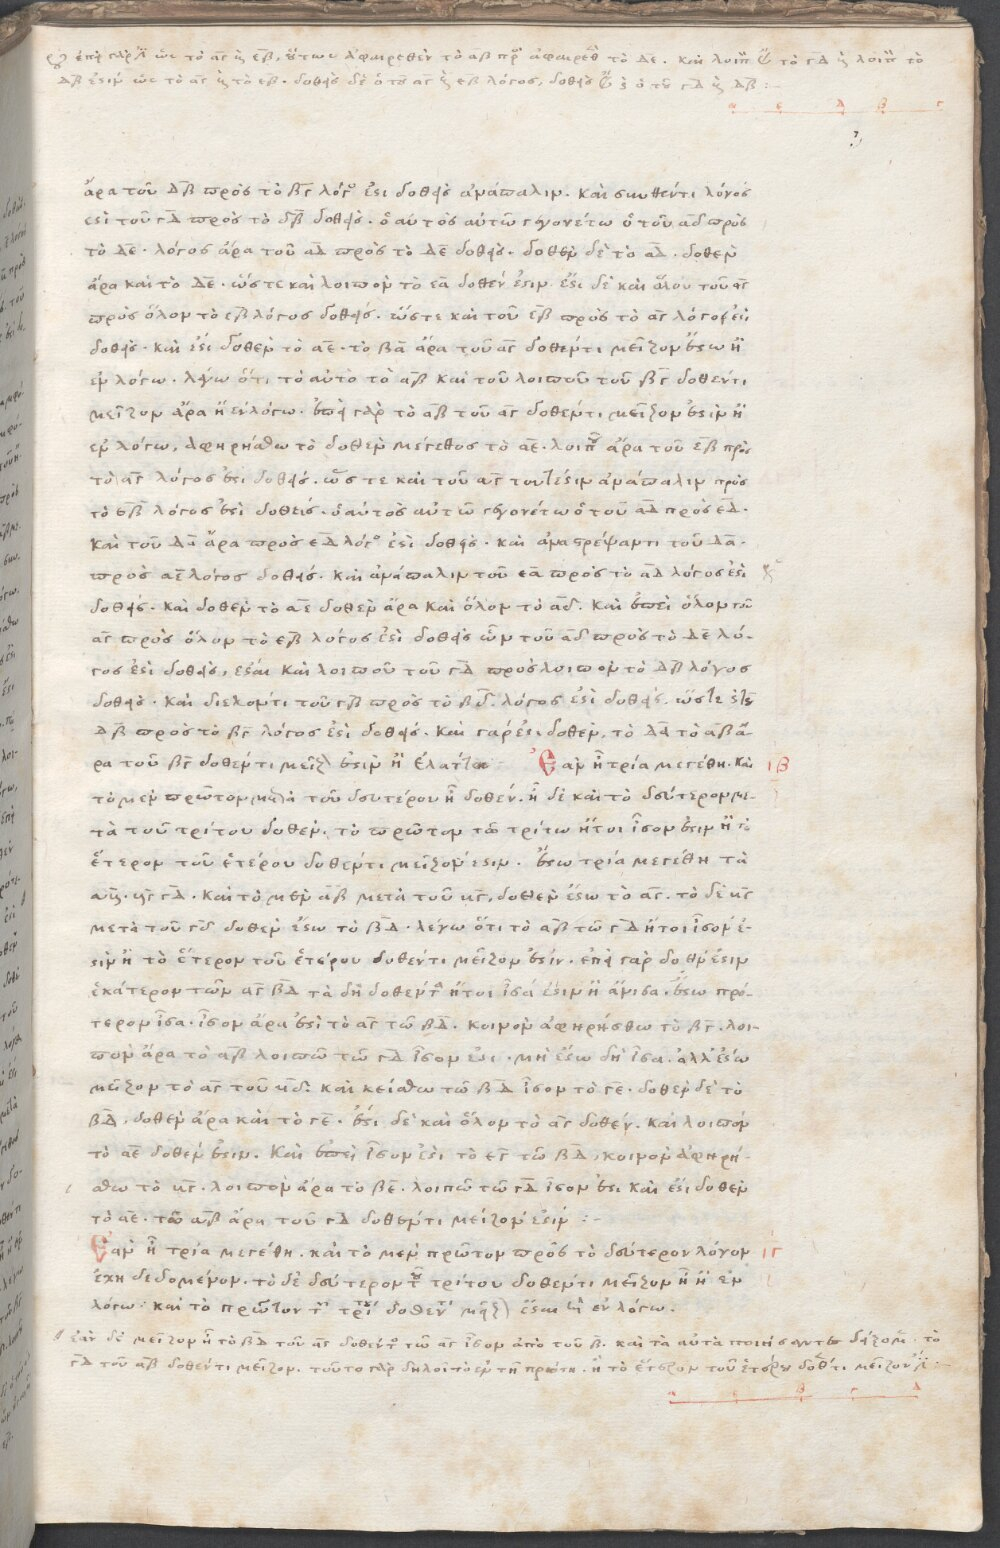 ἐπεὶ γάρ ἐστιν ὡς τὸ αγ πρὸς εβ, οὕτως ἀφαιρεθὲν τὸ αβ πρὸς ἀφαιρεθὲν τὸ δε. καὶ λοιπὸν ἄρα τὸ γδ πρὸς λοιπὸν τὸ
δβ ἐστὶν ὡς τὸ αγ πρὸς τὸ εβ. δοθεὶς δὲ ὁ τοῦ αγ πρὸς εβ λόγος, δοθεὶς ἄρα καὶ ὁ τοῦ γδ πρὸς δβ :~
α ε δ β γ
ἄρα τοῦ δβ πρὸς τὸ βγ λόγος ἐστὶ δοθεὶς ἀνάπαλιν. καὶ συνθέντι λόγος
ἐστὶ τοῦ γδ πρὸς τὸ δβ δοθείς. ὁ αὐτὸς αὐτῶ γεγονέτω ὁ τοῦ αδ πρὸς
τὸ δε. λόγος ἄρα τοῦ αδ πρὸς τὸ δε δοθείς. δοθὲν δὲ τὸ αδ. δοθὲν
ἄρα καὶ τὸ δε. ὥστε καὶ λοιπὸν τὸ εα δοθέν ἐστιν. ἔστι δὲ καὶ ὅλου τοῦ αγ
πρὸς ὅλον τὸ εβ λόγος δοθείς. ὥστε καὶ τοῦ εβ πρὸς τὸ αγ λόγος ἐστὶ
δοθείς. καὶ ἐστι δοθὲν τὸ αε. τὸ βα ἄρα τοῦ αγ δοθέντι μεῖζον ἔστω ἢ
ἐν λόγω. λέγω ὅτι τὸ αὐτὸ τὸ αβ καὶ τοῦ λοιποῦ τοῦ βγ δοθέντι
μεῖζον ἄρα ἢ ἐν λόγω. ἐπεὶ γὰρ τὸ αβ τοῦ αγ δοθέντι μεῖζον ἐστὶν ἢ
ἐν λόγω, ἀφηρήσθω τὸ δοθὲν μέγεθος τὸ αε. λοιποῦ ἄρα τοῦ εβ πρὸς
τὸ αγ λόγος ἐστὶ δοθείς. ὥστε καὶ τοῦ αγ τουτέστιν ἀνάπαλιν πρὸς
τὸ εβ λόγος ἐστὶ δοθείς. ὁ αὐτὸς αὐτῶ γεγονέτω ὁ τοῦ αδ πρὸς εδ.
καὶ τοῦ δα ἄρα πρὸς εδ λόγος ἐστὶ δοθείς. καὶ ἀναστρέψαντι τοῦ δα.
πρὸς αε λόγος δοθείς. καὶ ἀνάπαλιν τοῦ εα πρὸς τὸ αδ λόγος ἐστὶ
δοθείς. καὶ δοθὲν τὸ αε δοθὲν ἄρα καὶ ὅλον τὸ αδ. καὶ ἐπεὶ ὅλου τοῦ
αγ πρὸς ὅλον τὸ εβ λόγος ἐστὶ δοθεὶς ὧν τοῦ αδ πρὸς τὸ δε λό-
γος ἐστὶ δοθείς, ἔσται καὶ λοιποῦ τοῦ γδ πρὸς λοιπὸν τὸ δβ λόγος
δοθείς. καὶ διελόντι τοῦ γβ πρὸς τὸ βδ. λόγος ἐστὶ δοθείς. ὥστε καὶ τῆς
δβ πρὸς τὸ βγ λόγος ἐστὶ δοθείς. καὶ γάρ ἐστι δοθὲν, τὸ δα τὸ αβ ἄ-
ρα τοῦ βγ δοθέντι μεῖζον ἐστὶν ἢ ἐλάττω
Ἐὰν ἦ τρία μεγέθη. καὶ ιβ
τὸ μὲν πρῶτον μετὰ τοῦ δευτέρου ἦ δοθέν. ἦ δὲ καὶ τὸ δεύτερον με-
τὰ τοῦ τρίτου δοθὲν. τὸ πρῶτον τῶ τρίτω ἤτοι ἴσον ἐστὶν ἢ τὸ
ἕτερον τοῦ ἑτέρου δοθέντι μεῖζόν ἐστιν. ἔστω τρία μεγέθη τὰ
αβ. βγ γδ. καὶ τὸ μὲν αβ μετὰ τοῦ βγ, δοθὲν ἔστω τὸ αγ. τὸ δὲ βγ
μετὰ τοῦ γδ δοθὲν ἔστω τὸ βδ. λέγω ὅτι τὸ αβ τῶ γδ ἤτοι ἴσον ἐ-
στὶν ἢ τὸ ἕτερον τοῦ ἑτέρου δοθέντι μεῖζον ἐστίν. ἐπεὶ γὰρ δοθέν ἐστιν
ἑκάτερον τῶν αγ βδ τὰ δὴ δοθέντα ἤτοι ἴσά ἐστιν ἢ ἄνισα. ἔστω πρό-
τερον ἴσα. ἴσον ἄρα ἐστὶ τὸ αγ τῶ βδ. κοινὸν ἀφηρήσθω τὸ βγ. λοι-
πὸν ἄρα τὸ αβ λοιπῶ τῶ γδ ἴσον ἐστι. μὴ ἔστω δὴ ἴσα. ἀλλ' ἔστω
μεῖζον τὸ αγ τοῦ βδ. καὶ κείσθω τῶ βδ ἴσον τὸ γε. δοθὲν δὲ τὸ
βδ. δοθὲν ἄρα καὶ τὸ γε. ἔστι δὲ καὶ ὅλον τὸ αγ δοθέν. καὶ λοιπὸν
τὸ αε δοθέν ἐστιν. καὶ ἐπεὶ ἴσον ἐστὶ τὸ εγ τῶ βδ, κοινὸν ἀφηρή-
σθω τὸ βγ. λοιπὸν ἄρα τὸ βε. λοιπῶ τῶ γδ ἴσον ἐστι καὶ ἐστι δοθὲν
τὸ αε. τὸ αβ ἄρα τοῦ γδ δοθέντι μεῖζόν ἐστίν :~
Ἐὰν ἦ τρία μεγέθη. καὶ τὸ μὲν πρῶτον πρὸς τὸ δεύτερον λόγον ιγ
ἔχη δεδομένον. τὸ δὲ δεύτερον τοῦ τρίτου δοθέντι μεῖζον ἦ ἢ ἐν
λόγω : καὶ τὸ πρῶτον τοῦ τρίτου δοθέντι μεῖζον ἔσται ἢ ἐν λόγω.
ἐὰν δὲ μεῖζον ἦ τὸ βδ τοῦ αγ δοθέντος τῶ αγ ἴσον ἀπὸ τοῦ β. καὶ τὰ αὐτὰ ποιήσαντες δείξομεν. τὸ
γδ τοῦ αβ δοθέντι μεῖζον. τοῦτο γὰρ δηλοῖ τὸ ἐν τῆ προτάσει. ἢ τὸ ἕτερον τοῦ ἑτέρου δοθέντι μεῖζον ἐστί :~
α ε β γ δ